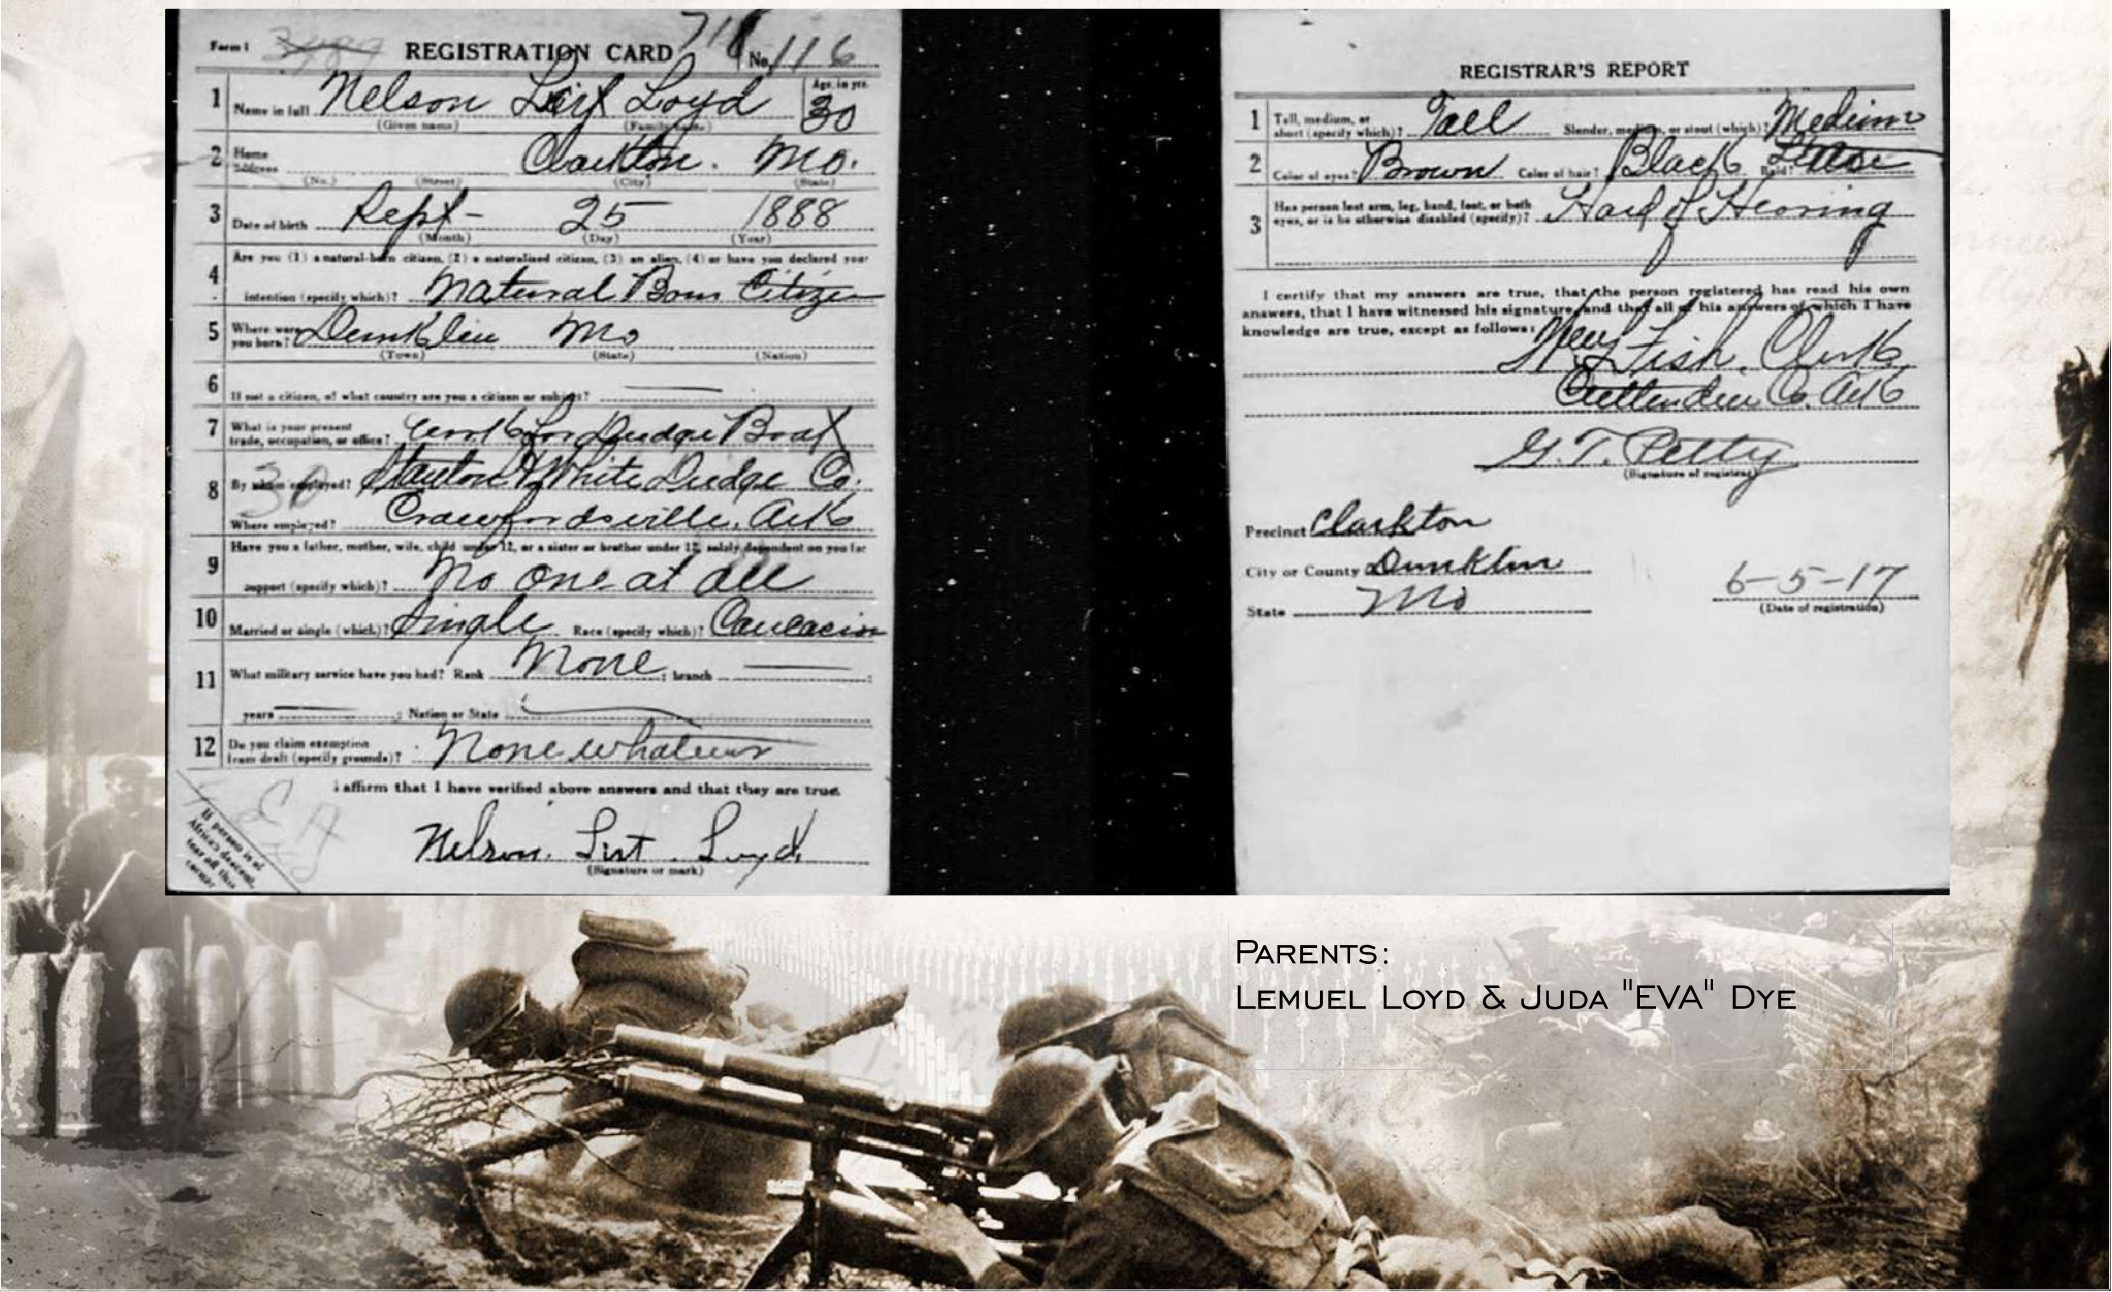 Form 1 REGISTRATION CARD No. 116
1 Name in full Nelson Loyd Age, in yrs. 30
(Given name) (Family name)
2 Home Address Clarkton. Mo.
(No.) (Street) (City) (State)
3 Date of birth Sept- 25 1888
(Month) (Day) (Year)
Are you (1) a natural-born citizen, (2) a naturalized citizen, (3) an alien, (4) or have you declared your
4 intention (specify which)? Natural Born Citizen
5 Where were you born? Dunklin Mo
(Town) (State) (Nation)
6 If not a citizen, of what country are you a citizen or subject?
7 What is your present trade, occupation, or office? Dredge Boat
8 By whom employed? White Dredge Co.
Where employed? Crawfordsville, Ark
9 Have you a father, mother, wife, child under 12, or a sister or brother under 12, solely dependent on you for
support (specify which)? No one at all
10 Married or single (which)? Single Race (specify which)? Caucasian
11 What military service have you had? Rank None ; branch ;
years ; Nation or State
12 Do you claim exemption from draft (specify grounds)? None whatever
I affirm that I have verified above answers and that they are true.
Nelson. Loyd
(Signature or mark)
If person is of
African descent,
tear off this
corner
REGISTRAR'S REPORT
1 Tall, medium, or short (specify which)? Tall Slender, medium, or stout (which)? Medium
2 Color of eyes? Brown Color of hair? Black Bald?
3 Has person lost arm, leg, hand, foot, or both eyes, or is he otherwise disabled (specify)? Hard of Hearing
I certify that my answers are true, that the person registered has read his own
answers, that I have witnessed his signature, and that all of his answers of which I have
knowledge are true, except as follows:
Fish, Clerk
Crittenden Co. Ark
G. T. Petty
(Signature of registrar)
Precinct Clarkton
City or County Dunklin
State Mo
6-5-17
(Date of registration)
PARENTS:
LEMUEL LOYD & JUDA "EVA" DYE